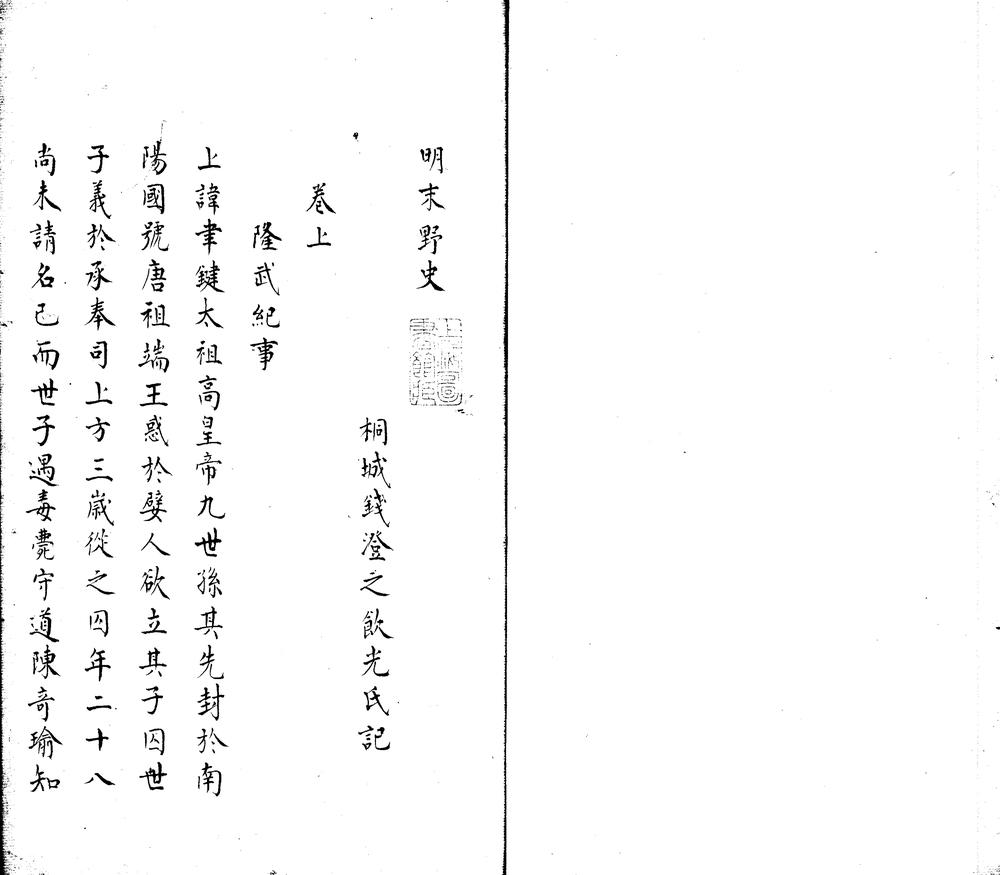 明末野史
上海圖書館藏
桐城錢澄之飲光氏記
卷上
隆武紀事
上諱聿鍵太祖高皇帝九世孫其先封於南
陽國號唐祖端王惑於嬖人欲立其子囚世
子義於承奉司上方三歲從之囚年二十八
尚未請名已而世子遇毒薨守道陳奇瑜知